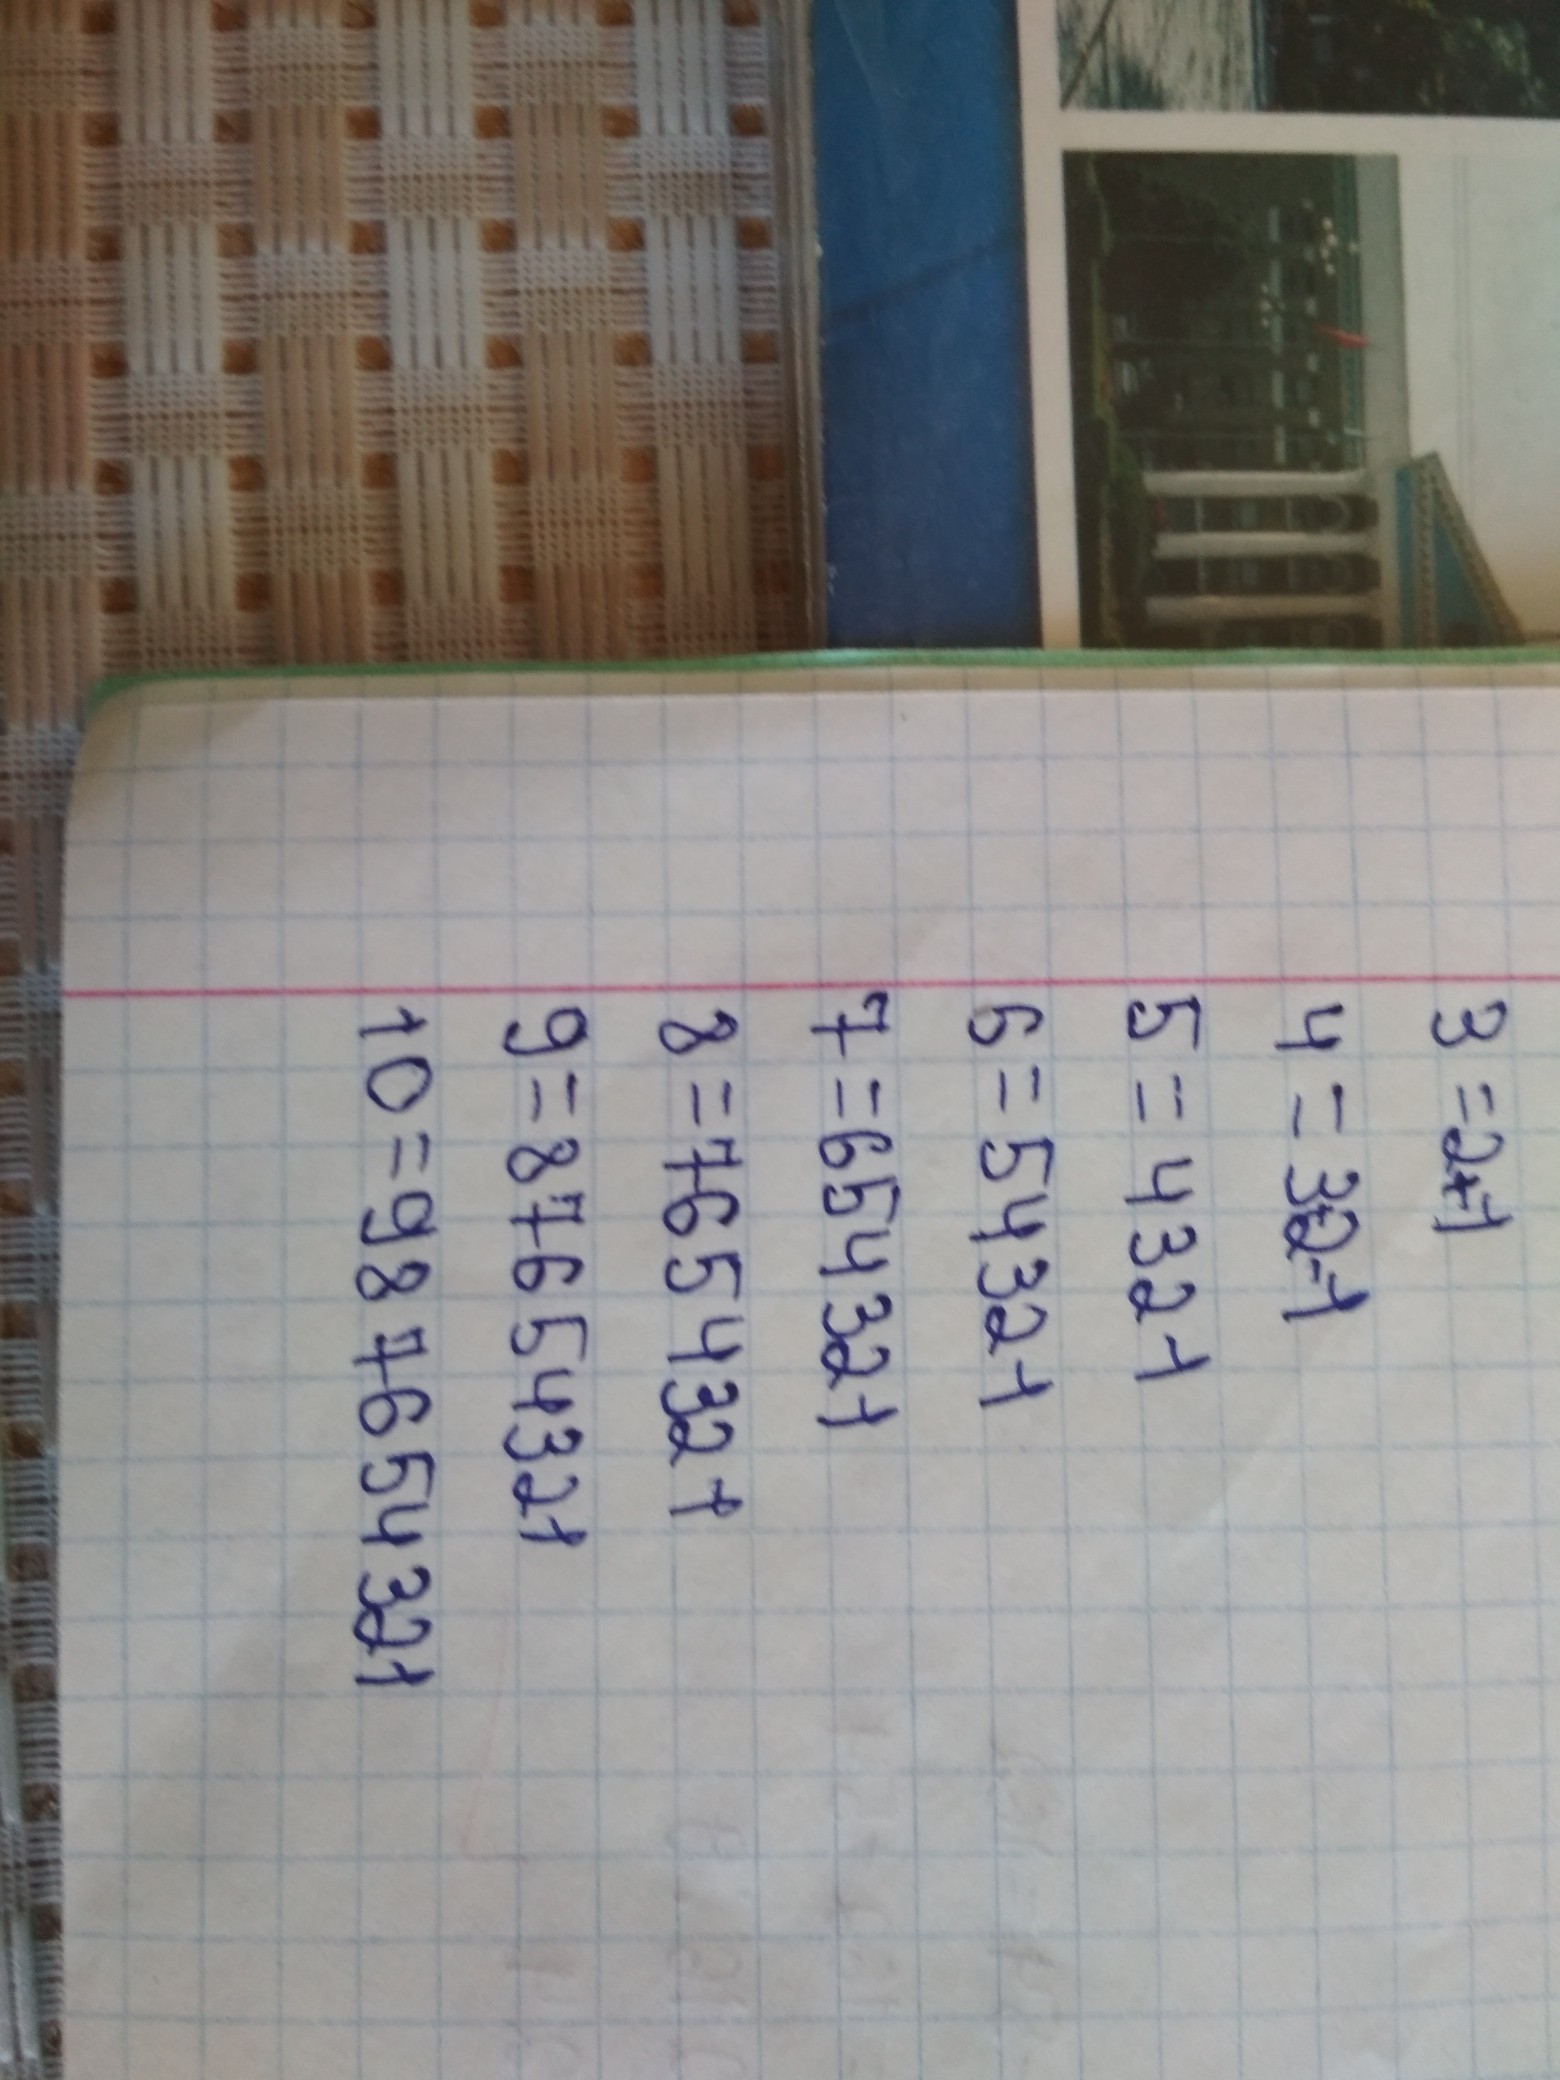 3 = 2+1
4 = 32-1
5 = 4321
6 = 54321
7 = 654321
8 = 7654321
9 = 87654321
10 = 987654321